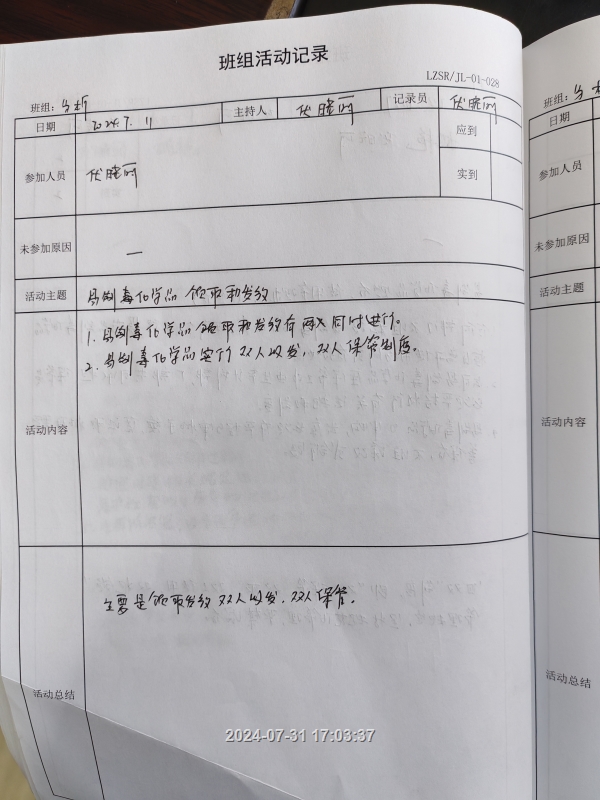 班组活动记录
LZSR/JL-01-028
班组：分析
日期 2024.7.11 主持人 伏晓丽 记录员 伏晓丽
参加人员 伏晓丽 应到
实到
未参加原因 —
活动主题 易制毒化学品领取和发放
活动内容
1. 易制毒化学品领取和发放有两人同时进行。
2. 易制毒化学品实行双人收发，双人保管制度。
活动总结
主要是领取发放双人收发，双人保管。
2024-07-31 17:03:37
班组：分析
日期
参加人员
未参加原因
活动主题
活动内容
活动总结